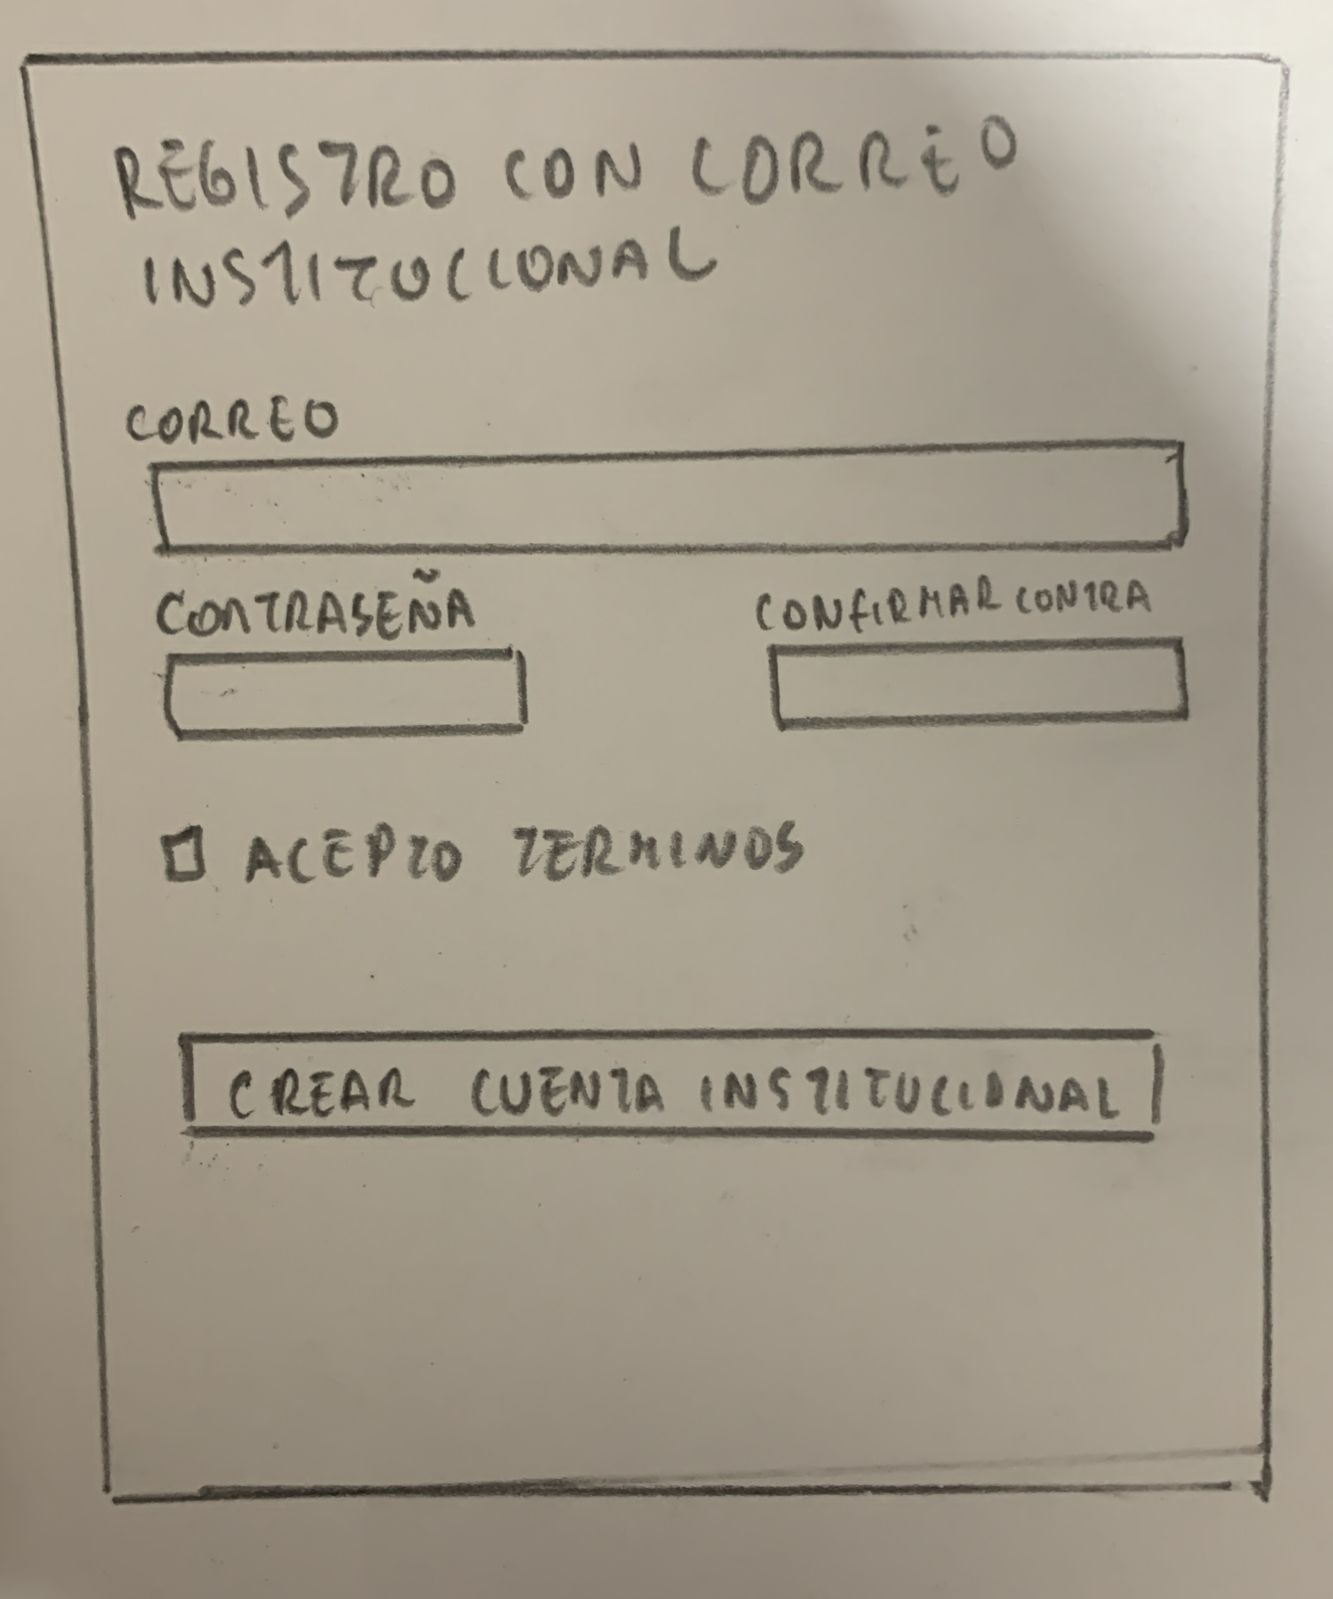 REGISTRO CON CORREO
INSTITUCIONAL
CORREO
CONTRASEÑA
CONFIRMAR CONTRA
ACEPTO TERMINOS
CREAR CUENTA INSTITUCIONAL